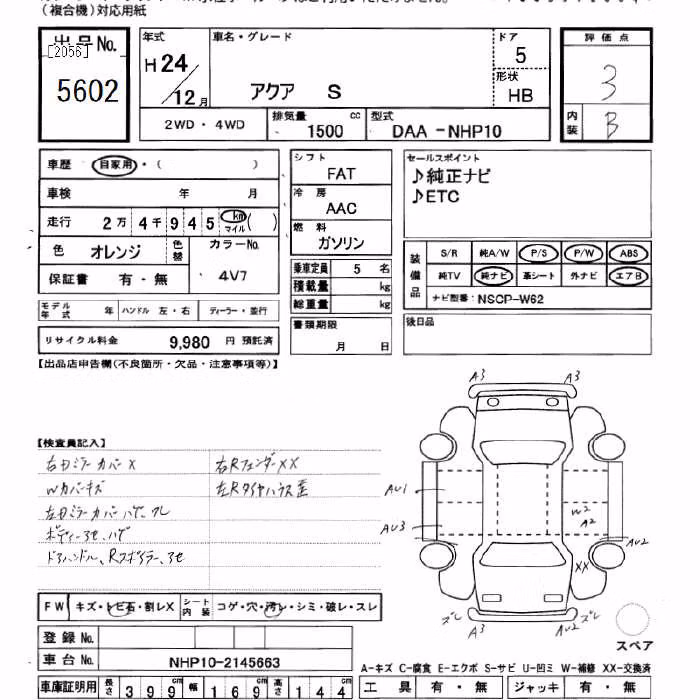 (複合機)対応用紙
出品No.
[2056]
5602
年式
H 24/12月
車名・グレード
アクア S
ドア
5
形状
HB
評価点
3
内装
B
2WD・4WD
排気量
1500 cc
型式
DAA -NHP10
車歴 自家用・( )
車検 年 月
走行 2万 4千 9 4 5 km マイル ( )
色 オレンジ
色替
カラーNo.
4V7
保証書 有・無
モデル年式 年 ハンドル 左・右 ディーラー・並行
リサイクル料金 9,980 円 預託済
シフト
FAT
冷房
AAC
燃料
ガソリン
乗車定員 5 名
積載量 kg
総重量 kg
書類期限
月 日
セールスポイント
♪純正ナビ
♪ETC
装備品
S/R 純A/W P/S P/W ABS
純TV 純ナビ 革シート 外ナビ エアB
ナビ型番: NSCP-W62
後日品
【出品店申告欄(不良箇所・欠品・注意事項等)】
【検査員記入】
右ドミラーカバーX
右RフェンダーXX
Wカバーキズ
左Rタイヤハウス歪
左ドミラーカバーハゲ、ワレ
ボディー3セ、ハゲ
ドアハンドル、Rスポイラー3セ
A3 A3
AU1
AU3
W2
A2
AU2
XX
ズレ A3 AU2 ズレ
スペア
FW キズ・トビ石・割レX シート内装 コゲ・穴・汚レ・シミ・破レ・スレ
登録No.
車台No. NHP10-2145663
車庫証明用 長さ 3 9 9 cm 幅 1 6 9 cm 高さ 1 4 4 cm
A-キズ C-腐食 E-エクボ S-サビ U-凹ミ W-補修 XX-交換済
工具 有・無 ジャッキ 有・無